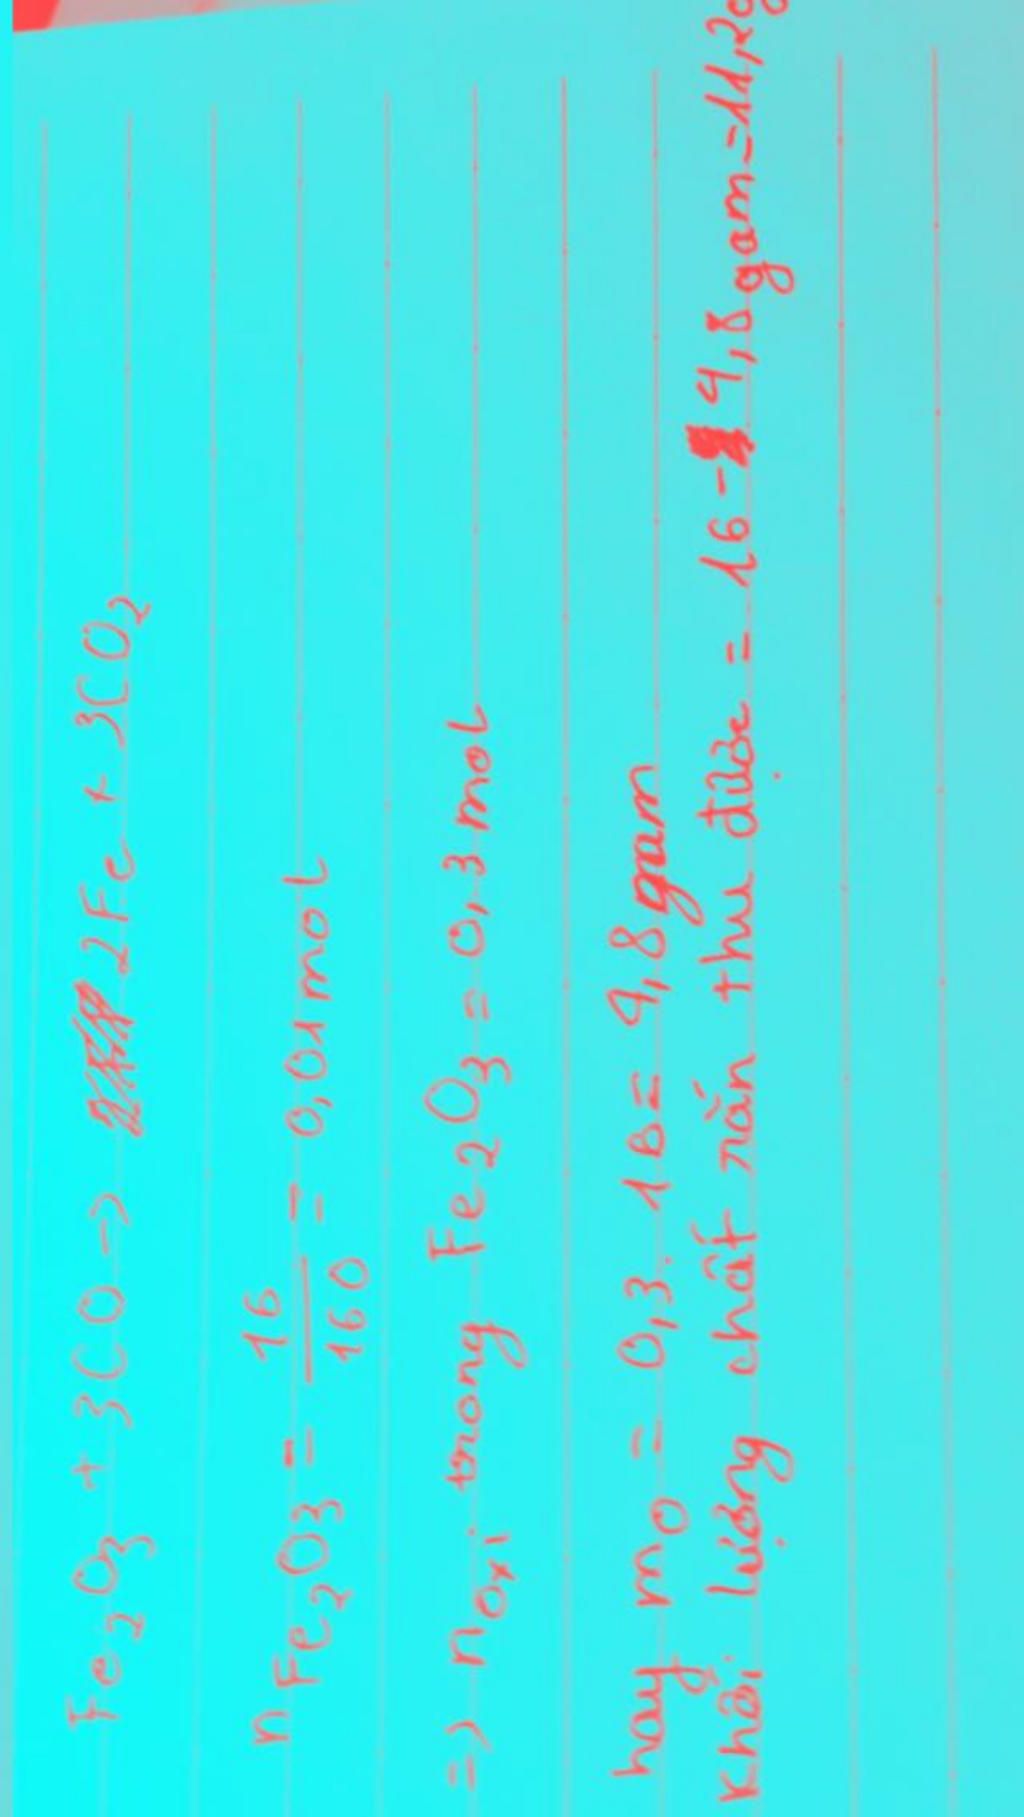 Fe₂O₃ + 3CO → 2Fe + 3CO₂
nFe₂O₃ = 16/160 = 0,01 mol
=> nOxi trong Fe₂O₃ = 0,3 mol
hay mO = 0,3. 16 = 4,8 gam
Khối lượng chất rắn thu được = 16 - 4,8 gam = 11,2g